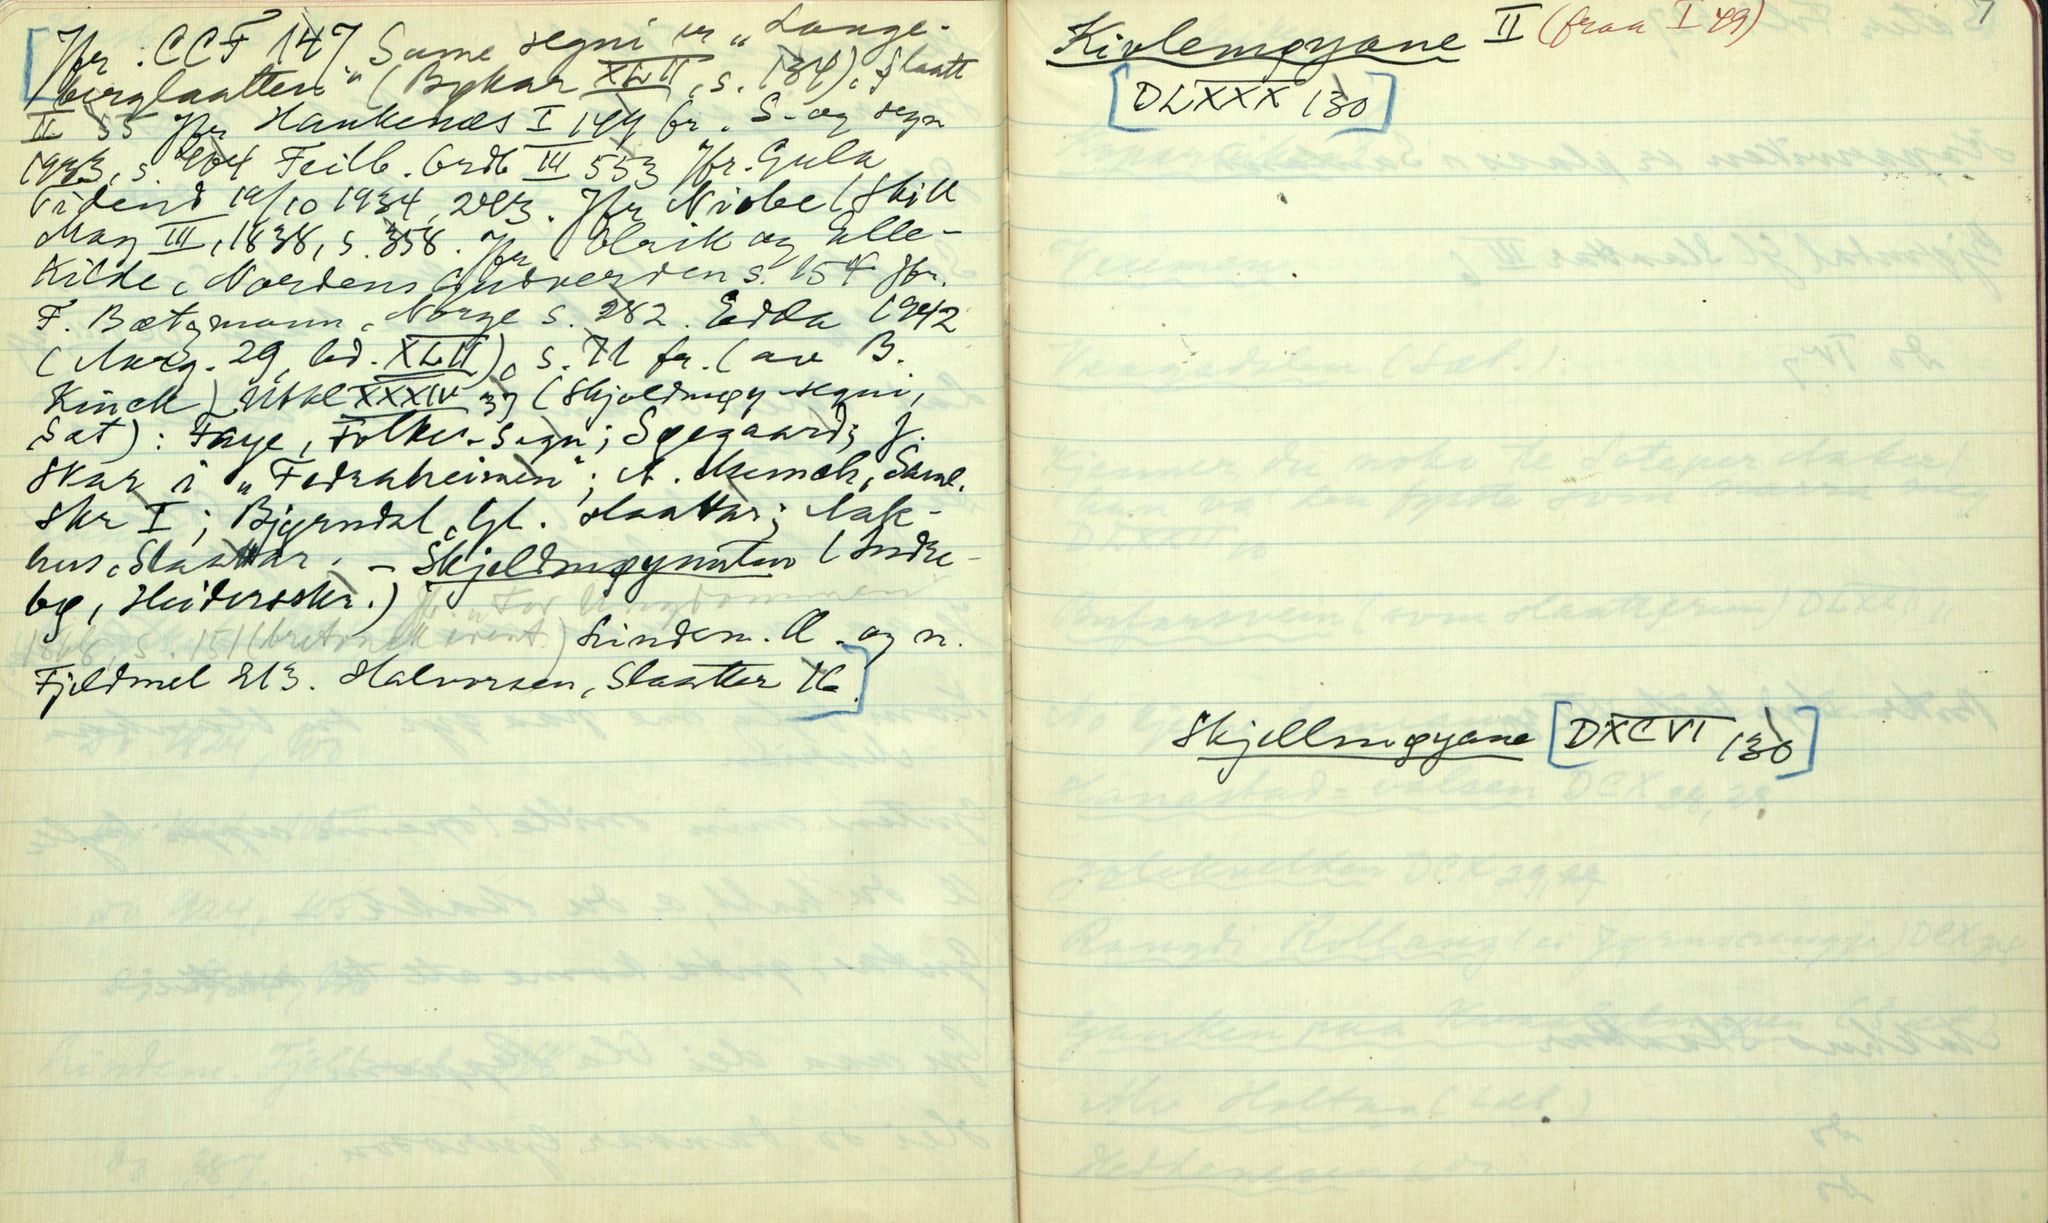 [Jfr. CCF 147 Same segni er "Lange-
berglaatten" (Bykar XLII, s. 134), Slaatt
II 55 Jfr Haukenæs I 144 fr. S- og segn
1923, s. 404 Feilb. Ordb III 553 Jfr. Gula
Tidend 19/10 1934, 2det. Jfr Niobe (Skill
Mag III, 1838, s. 358. Jfr Olrik og Elle-
Kilde, Nordens Gudverden s. 154 Jfr.
F. Bætzmann, Norge s. 282. Edda 1942
(Aarg. 29, bd. XLII), s. 71 fr. (av B.
Kinck) XXXIV 37 (Skjoldmøy-segni,
Sæt): Faye, Folke-Sagn; Søegaard; J.
Skar i "Fedraheimen"; A. Munch, Saml.
Skr I; Bjørndal, Gl. slaattar; Nak-
hus, Slaattar. - Skjeldmøynutan (Indre-
bø, Heidersskr.) Jfr "For Ungdommen
1868, s. 151 (bretonsk event.) Lindem. Æ. og n.
Fjeldmel 213. Halvorsen, Slaatter 76.]
7
Kivlemøyane II (fraa I 49)
[DLXXX 130]
Skjellmøyane [DXCVI 130]